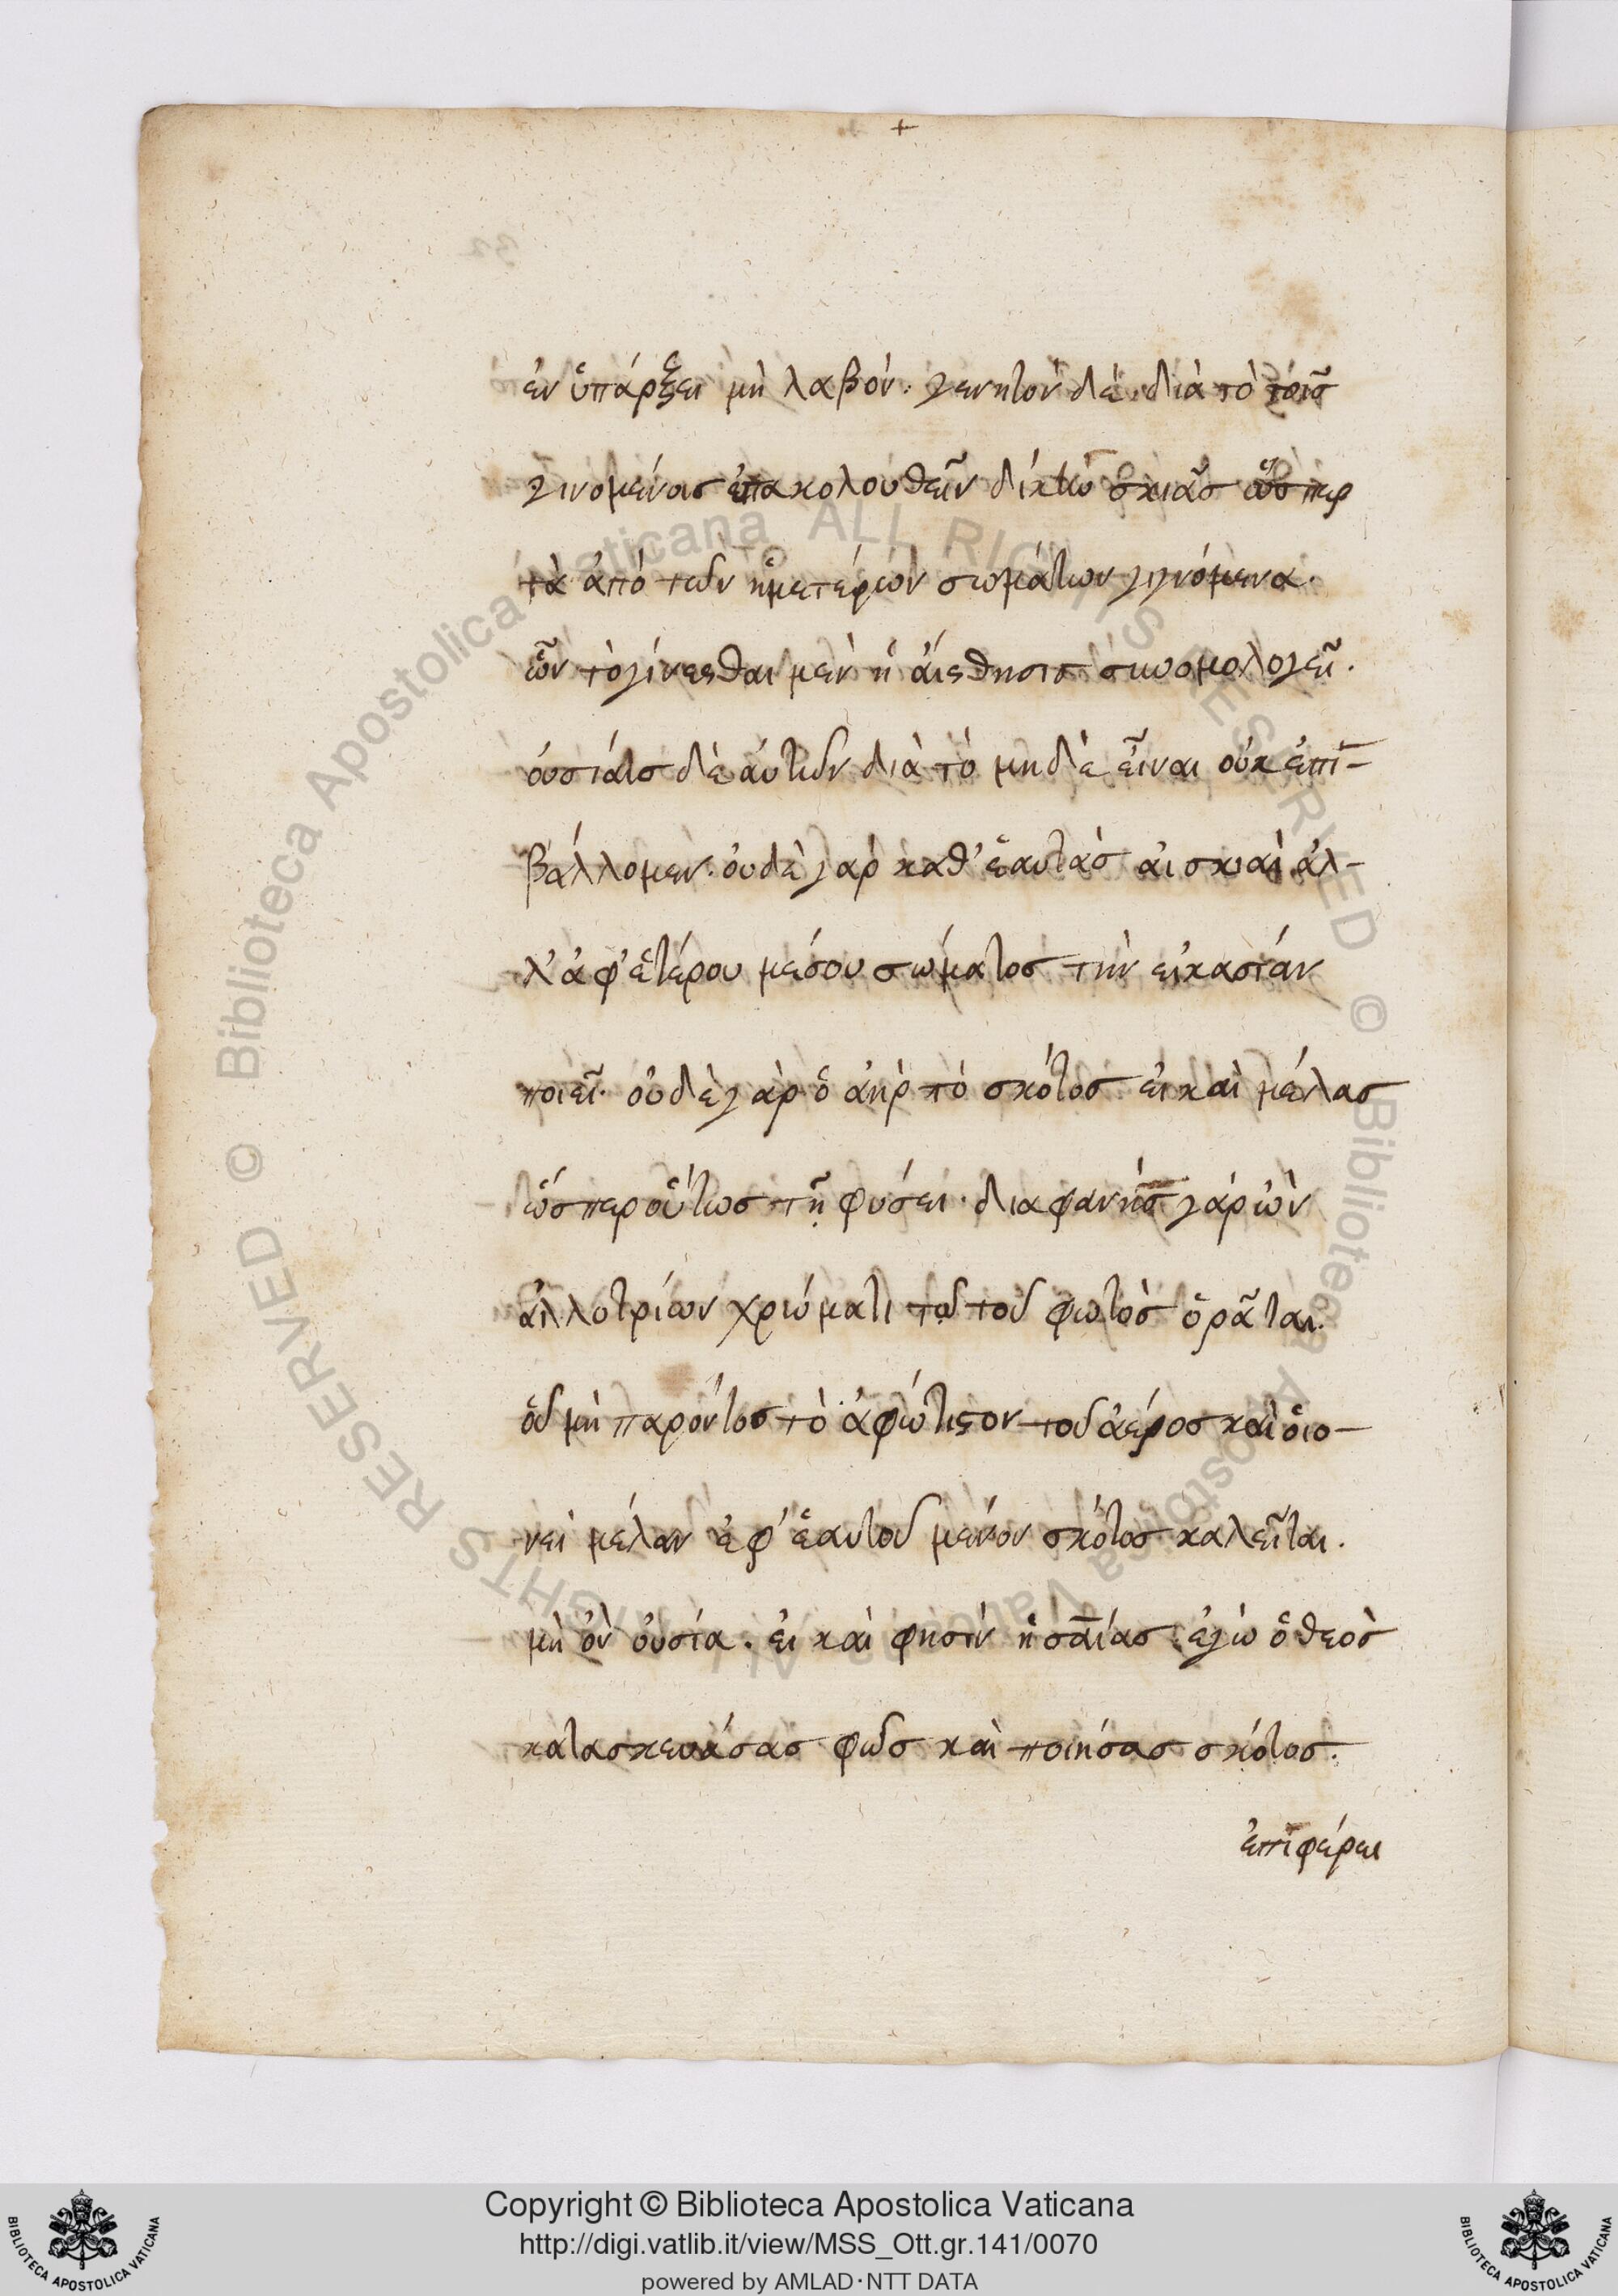 +
ἐν ὑπάρξει μὴ λαβόν. γενητὸν δὲ. διὰ τὸ τοῖς
γινομένοις ἐπακολουθεῖν δίκην σκιᾶς ὥσπερ
τὰ ἀπὸ τῶν ἡμετέρων σωμάτων γινόμενα.
ὧν τὸ γίνεσθαι μὲν ἡ αἴσθησις συνομολογεῖ.
οὐσίαις δὲ αὐτῶν διὰ τὸ μηδὲ εἶναι οὐκ ἐπι-
βάλλομεν. οὐδὲ γὰρ καθ' ἑαυτὰς αἱ σκιαὶ ἀλ-
λ' ἀφ' ἑτέρου μέσου σώματος τὴν εἰκασίαν
ποιεῖ. οὐδὲ γὰρ ὁ ἀὴρ τὸ σκότος εἰ καὶ μέλας
ὥσπερ οὕτως τῇ φύσει. διαφανὴς γὰρ ὢν
ἀλλοτρίων χρώματι τῷ τοῦ φωτὸς ὁρᾶται.
οὗ μὴ παρόντος τὸ ἀφώτιστον τοῦ ἀέρος καὶ οἱο-
νεὶ μέλαν ἐφ' ἑαυτοῦ μένον σκότος καλεῖται.
μὴ ὂν οὐσία. εἰ καὶ φησὶν ἡσαΐας. ἐγὼ ὁ θεὸς
κατασκευάσας φῶς καὶ ποιήσας σκότος.
ἐπιφέρει
Copyright © Biblioteca Apostolica Vaticana
http://digi.vatlib.it/view/MSS_Ott.gr.141/0070
powered by AMLAD·NTT DATA
BIBLIOTECA APOSTOLICA VATICANA
BIBLIOTECA APOSTOLICA VATICANA
© Biblioteca Apostolica Vaticana ALL RIGHTS RESERVED © Biblioteca Apostolica Vaticana ALL RIGHTS RESERVED